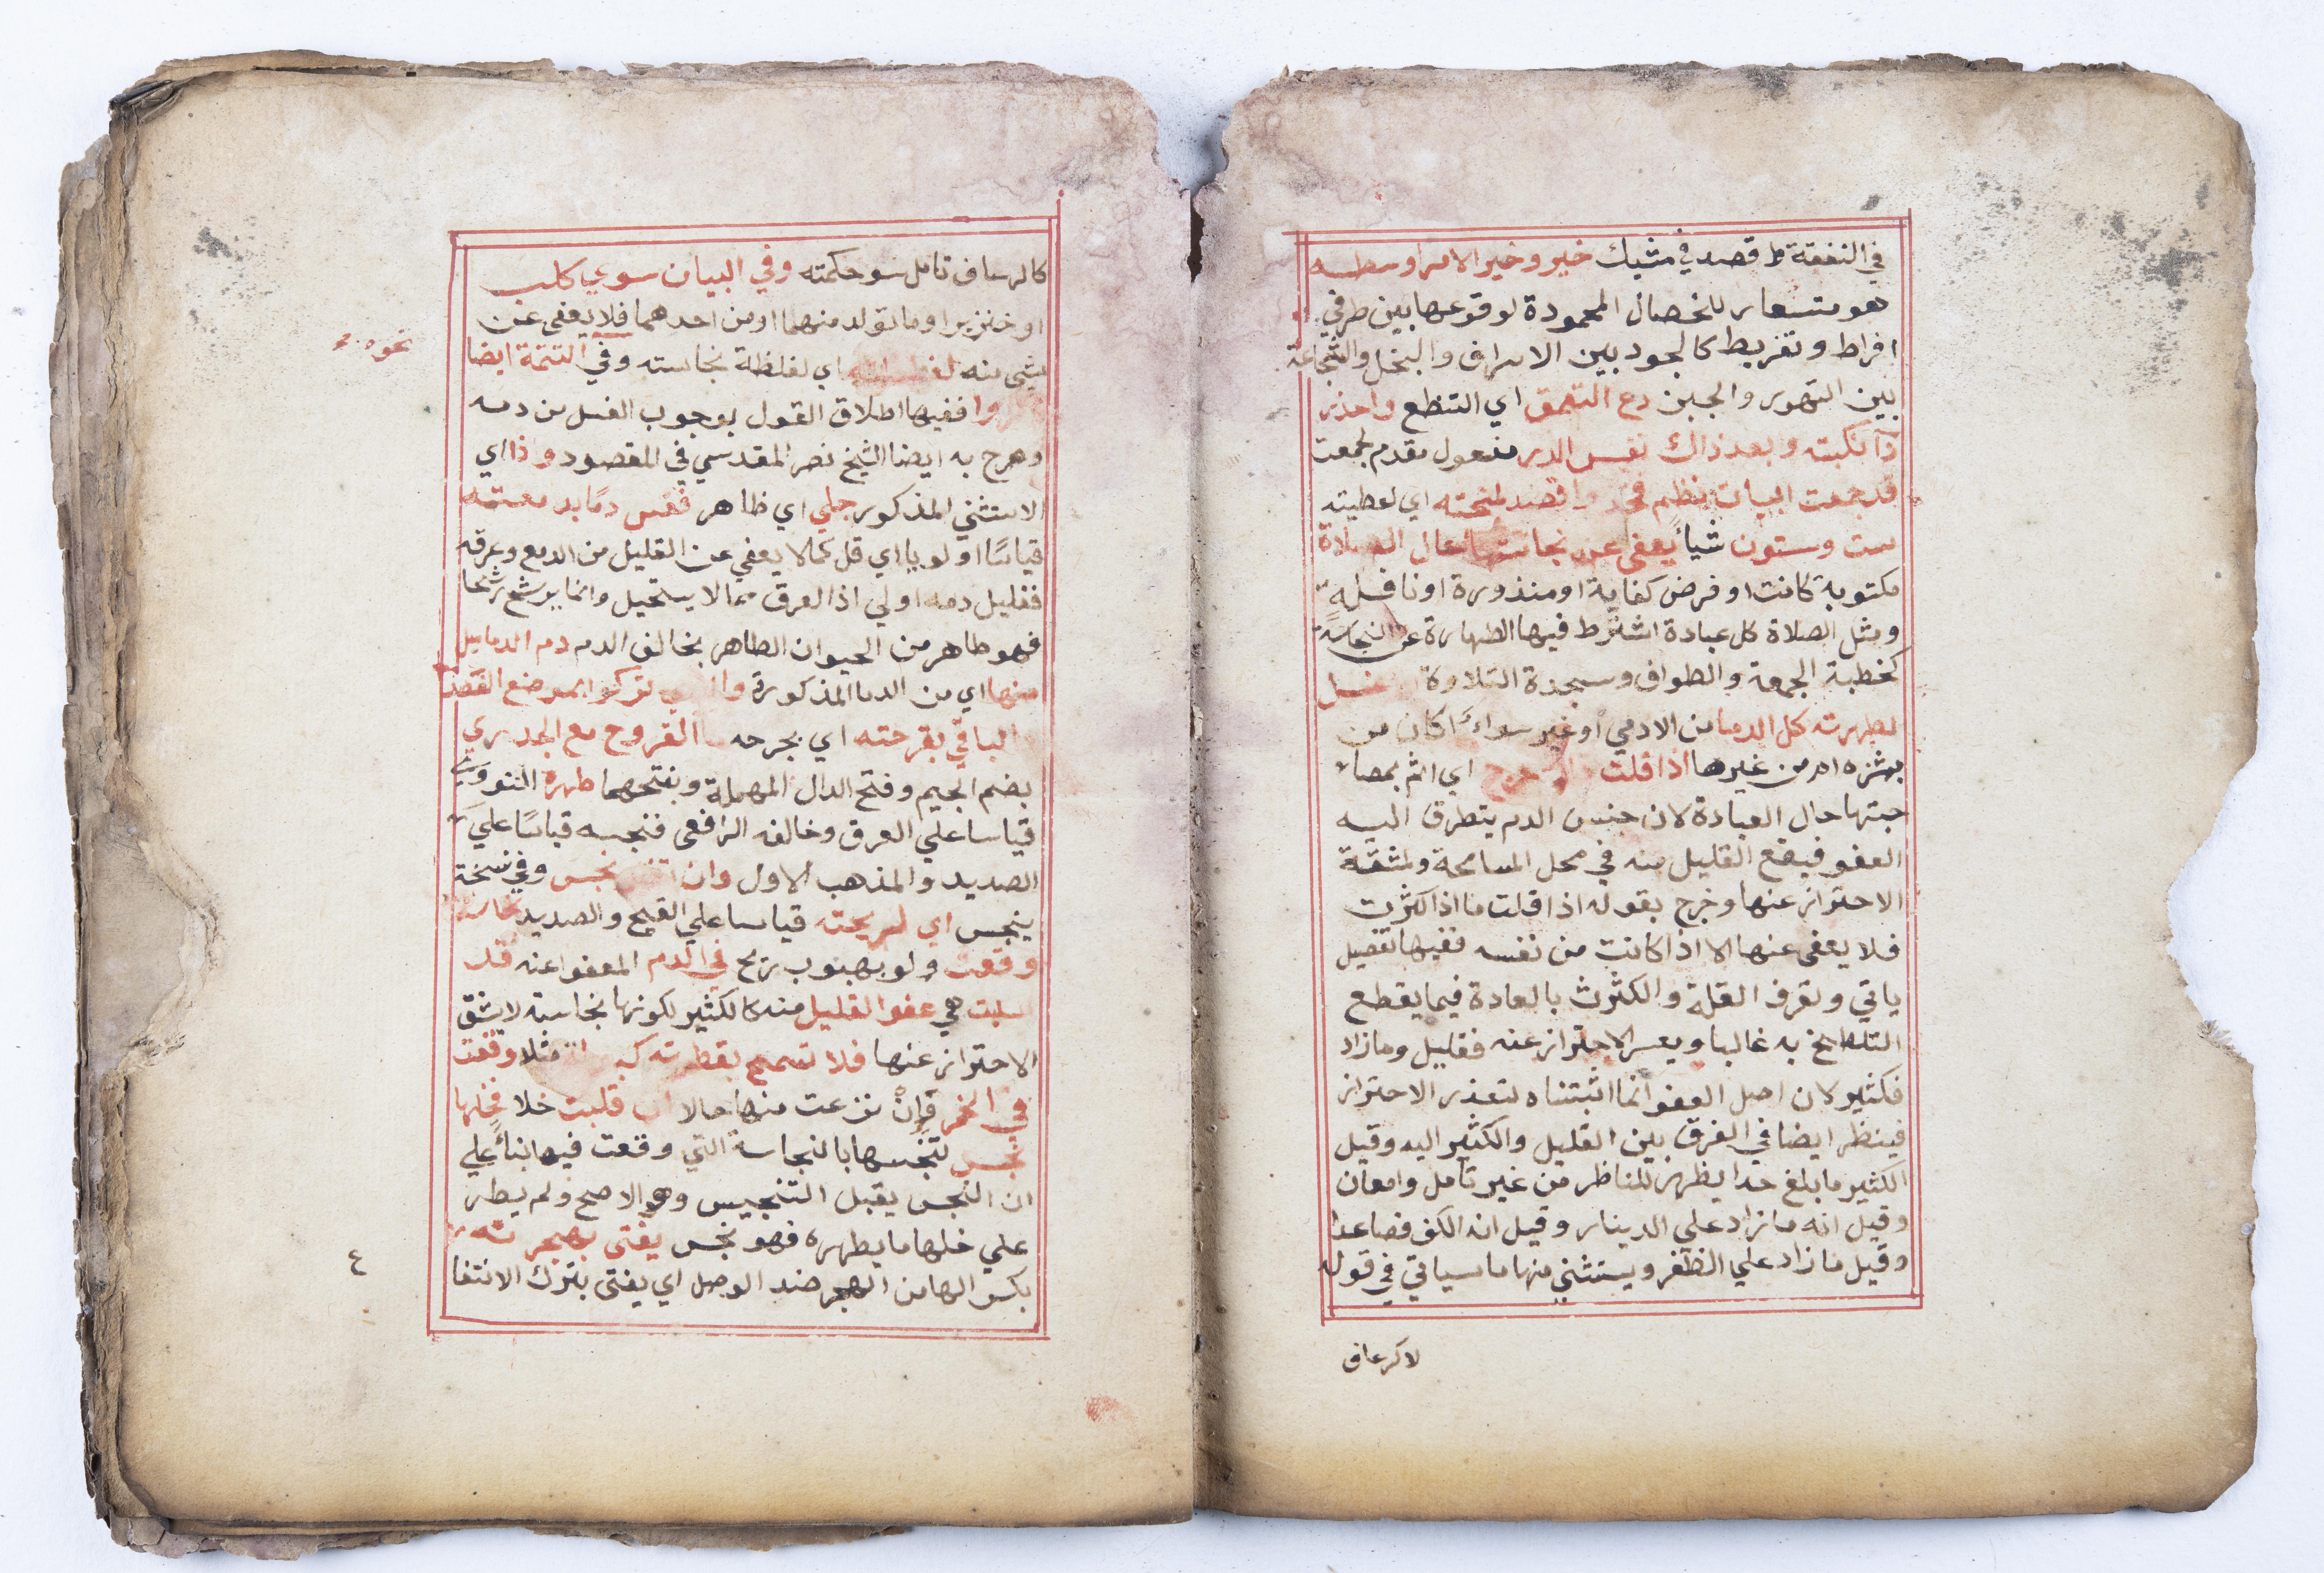 في النفقة ط قصد في مشيك خير وخير الامر اوسطه
هو مستعار للخصال المحمودة لوقوعها بين طرفي
افراط وتفريط كالجود بين الاسراف والبخل والشجاعة
بين التهور والجبن دع التعمق اي التنطع واحذر
نكبته وبعد ذاك نفس الدر مفعول مقدم لجمعت
قد جمعت البيان بنظم اقصد لمنحته اي لعطيته
ست وستون شيأ يعفي عن نجاستها حال الصلاة
مكتوبة كانت او فرض كفاية او منذورة او نافلة
ومثل الصلاة كل عبادة اشترط فيها الطهارة عن النجاسة
كخطبة الجمعة والطواف وسجدة التلاوة
لطهرته كل الدما من الادمي او غيره سواء اكان من
ام من غيرها اذا قلت حرج اي اثم بمصا
حبتها حال العبادة لان جنس الدم يتطرق اليه
العفو فيقع القليل منه في محل المسامحة ولمشقة
الاحتراز عنها وخرج بقوله اذا قلت ما اذا كثرت
فلا يعفي عنها الا اذا كانت من نفسه ففيها تفصيل
ياتي وتعرف القلة والكثرت بالعادة فيما يقطع
التلطخ به غالبا ويعسر الاحتراز عنه فقليل وما زاد
فكثير لان اصل العفو انما اثبتناه لتعذر الاحتراز
فينظر ايضا في الفرق بين القليل والكثير اليه وقيل
الكثير ما بلغ حدا يظهر للناظر من غير تامل وامعان
وقيل انه ما زاد علي الدينار وقيل انه الكف فصاعدا
وقيل ما زاد علي الظفر ويستثني منها ما سياتي في قوله
لا كرعاف
كالرعاف تامل سو حكمته وفي البيان سوي كلب
او خنزير او ما تولد منهما او من احدهما فلا يعفي عن
شي منه اي لغلظة نجاسته وفي التتمة ايضا
نحوه
ففيها اطلاق القول بوجوب الغسل من دمه
وصرح به ايضا الشيخ نصر المقدسي في المقصود وذا اي
الاستثني المذكور جلي اي ظاهر فقس دمًا بد معته
قياسًا اولويا اي قل كما لا يعفي عن القليل من الدمع وعرقه
فقليل دمه اولي اذ العرق مما لا يستحيل وانما يرشح رشحا
فهو طاهر من الحيوان الطاهر بخالف الدم دم الدماميل
منها اي من الدما المذكورة تركوا بموضع الفصد
الباقي بقرحته اي بجرحه القروح مع الجدري
بضم الجيم وفتح الدال المهملة وبفتحهما طهره النووي
قياسا علي العرق وخالفه الرافعي فنجسه قياسًا علي
الصديد والمذهب الاول وان نجس وفي نسخة
ينجس اي لريحته قياسا علي القيح والصديد نجاسة
وقعت ولو بهبوب ريح في الدم المعفو عنه قد
سلبت هي عفو القليل منه كالكثير لكونها نجاسة لا شق
الاحتراز عنها فلا تسمح بقطرته مثلا وقعت
في الخمر فإن نزعت منها حالا قلبت خلا فخلها
نجس لتنجسها بالنجاسة التي وقعت فيها بنأ علي
ان النجس يقبل التنجيس وهو الاصح ولم يطر
علي خلها ما يطهره فهو نجس يفتي بهجرته
بكسر الها من الهجر ضد الوصل اي يفتي بترك الانتفا
٤